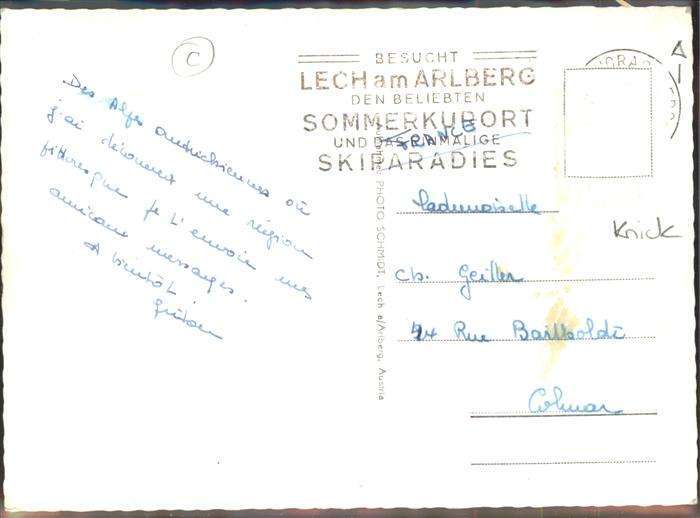 C
BESUCHT
LECH am ARLBERG
DEN BELIEBTEN
SOMMERKURORT
UND DAS EINMALIGE
SKIPARADIES
FRANCE
Des Alpes autrichiennes où
j'ai découvert une région
pittoresque je t'envoie mes
amicaux messages.
A bientôt
PHOTO SCHMIDT, Lech a/Arlberg, Austria
Mademoiselle
Ch. Geiller
Rue Bartholdi
Colmar
Knick